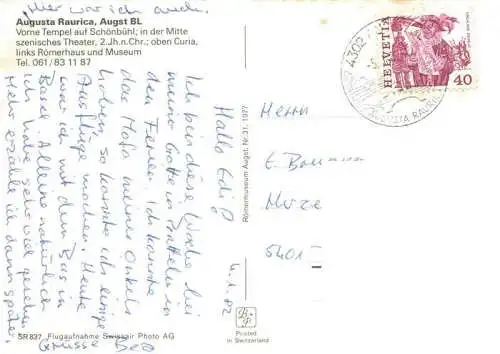 Hier war ich auch.
Augusta Raurica, Augst BL
Vorne Tempel auf Schönbühl; in der Mitte
szenisches Theater, 2.Jh.n.Chr.; oben Curia,
links Römerhaus und Museum
Tel. 061/83 11 87
Hallo Edi!
Ich bin diese Woche bei
meiner Gotte in Pratteln in
den Ferien. Ich konnte
das Mofa meines Onkels
haben, so konnte ich einige
Ausflüge machen. Heute
war ich mit dem in
Basel. Alleine natürlich.
Ich habe sehr viel gesehen.
Mehr erzähle ich dann später.
Grüsse Bea
SR 837 Flugaufnahme Swissair Photo AG
Römermuseum Augst, Nr. 31, 1977
Printed
in Switzerland
4302
AUGUSTA RAURICA
HELVETIA
40
Herrn
E.
5401